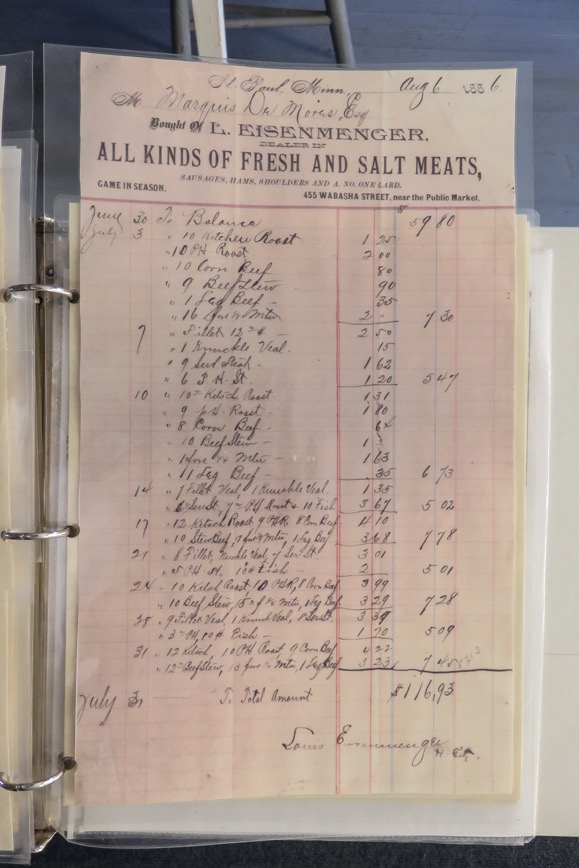 St. Paul, Minn., Aug 6 1886.
Mr Marquis De Mores, Esq
Bought of L. EISENMENGER,
DEALER IN
ALL KINDS OF FRESH AND SALT MEATS,
SAUSAGES, HAMS, SHOULDERS AND A. NO. ONE LARD.
GAME IN SEASON.
455 WABASHA STREET, near the Public Market.
June 30 To Balance 59 80
July 3 " 10 Kitchen Roast 1 25
" 10 PH Roast 2 00
" 10 Corn Beef 80
" 9 Beef Stew 90
" 1 Leg Beef - 35
" 16 fore 1/4 Mtn 2 - 7 30
7 " Fillet 12 # - 2 50
" 1 Knuckle Veal. 15
" 9 Steak - 1 62
" 6 P. H. St. 1 20 5 47
10 " 10 Kitch Roast. 1 31
" 9 p.H. Roast. 1 80
" 8 Corn Beef. 64
" 10 Beef Stew - 1
" fore 1/4 Mtn - 1 63
" 11 Leg Beef - 35 6 73
14 " 7 Fillet Veal, 1 Knuckle Veal. 1 35
" PH Roast & 10 Fish 3 67 5 02
17 " 12 Kitch Roast, 9 PHR, 8 Corn Beef. 4 10
" 10 Stew Beef, fore 1/4 Mtn, 1 Leg Bf 3 68 7 78
21 " 8 Fillet, Nuckle Veal, 3 01
" 5 PH St. 10# Fish - 2 5 01
24 " 10 Kitch Roast, 10 PHR, 8 Corn Beef 3 99
" 10 Beef Stew, 15 # f 1/4 Mtn, 1 Leg Bf. 3 29 7 28
28 " 9 Fillet Veal, 1 Knuckel Veal, 3 39
" 3 # PH, 10 # Fish - 1 70 5 09
31 " 12 Kitch, 10 PH Roast 9 Corn Beef 4 22
" 12 # Beef Stew, 13 fore 1/4 Mtn, 1 Leg Beef 3 23 7 45
July 31 To Total Amount $116,93
Louis Eisenmenger